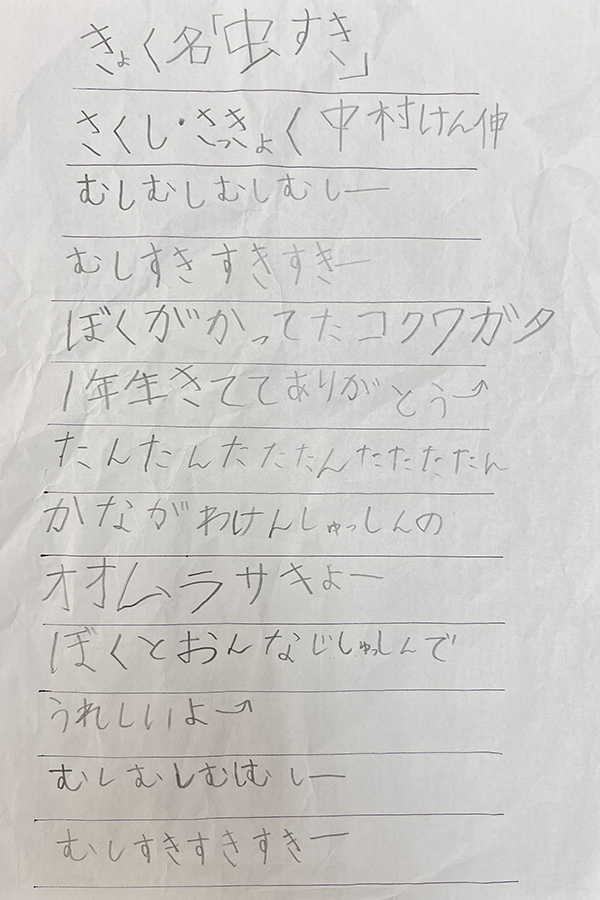 きょく名「虫すき」
さくし・さっきょく 中村けん伸
むしむしむしむしー
むしすきすきすきー
ぼくがかってたコクワガタ
1年生きててありがとう〜
たんたんたたたんたたたたん
かながわけんしゅっしんの
オオムラサキよー
ぼくとおんなじしゅっしんで
うれしいよ〜
むしむしむしむしー
むしすきすきすきー